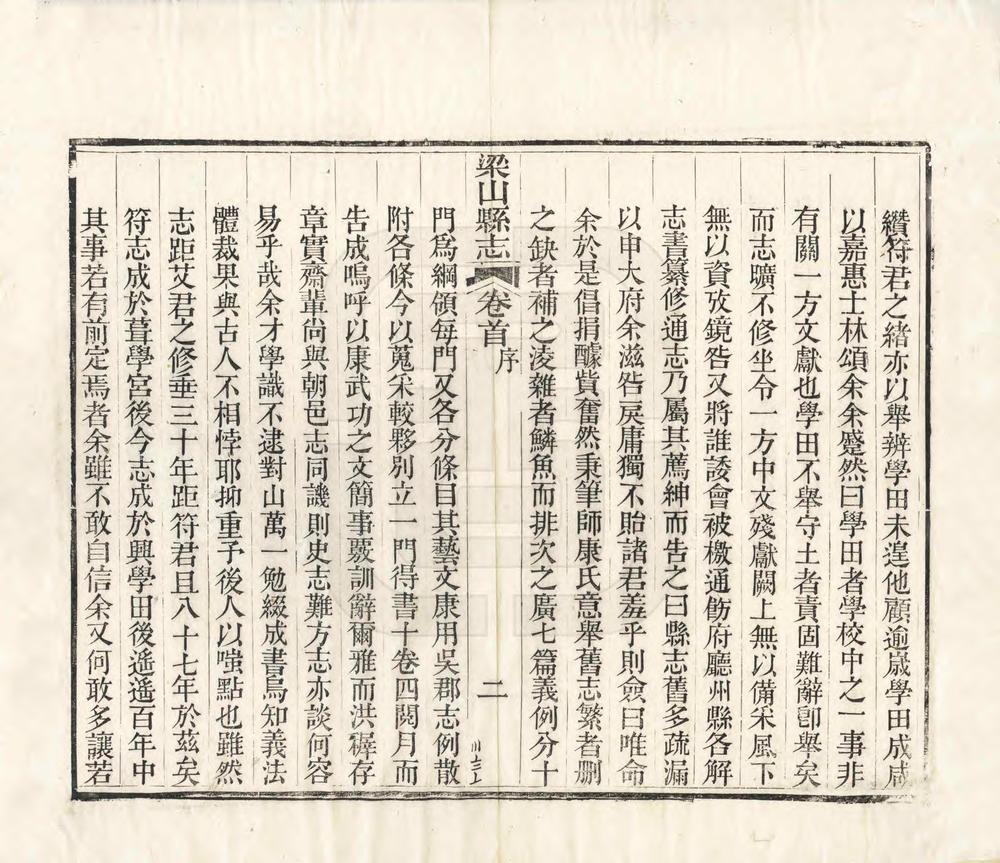 纘符君之緒亦以舉辦學田未遑他顧逾歲學田成咸
以嘉惠士林頌余余蹙然曰學田者學校中之一事非
有關一方文獻也學田不舉守土者責固難辭卽舉矣
而志曠不修坐令一方中文殘獻闕上無以備采風下
無以資攷鏡咎又將誰諉會被檄通飭府廳州縣各解
志書纂修通志乃屬其薦紳而告之曰縣志舊多疏漏
以申大府余滋咎戾庸獨不貽諸君羞乎則僉曰唯命
余於是倡捐醵貲奮然秉筆師康氏意舉舊志繁者刪
之缺者補之淩雜者鱗魚而排次之廣七篇義例分十
梁山縣志 卷首 序 二
門爲綱領每門又各分條目其藝文康用吳郡志例散
附各條今以蒐采較夥別立一門得書十卷四閱月而
告成嗚呼以康武功之文簡事覈訓辭爾雅而洪穉存
章實齋輩尙與朝邑志同譏則史志難方志亦談何容
易乎哉余才學識不逮對山萬一勉綴成書烏知義法
體裁果與古人不相悖耶抑重予後人以嗤點也雖然
志距艾君之修垂三十年距符君且八十七年於茲矣
符志成於葺學宮後今志成於興學田後遙遙百年中
其事若有前定焉者余雖不敢自信余又何敢多讓若